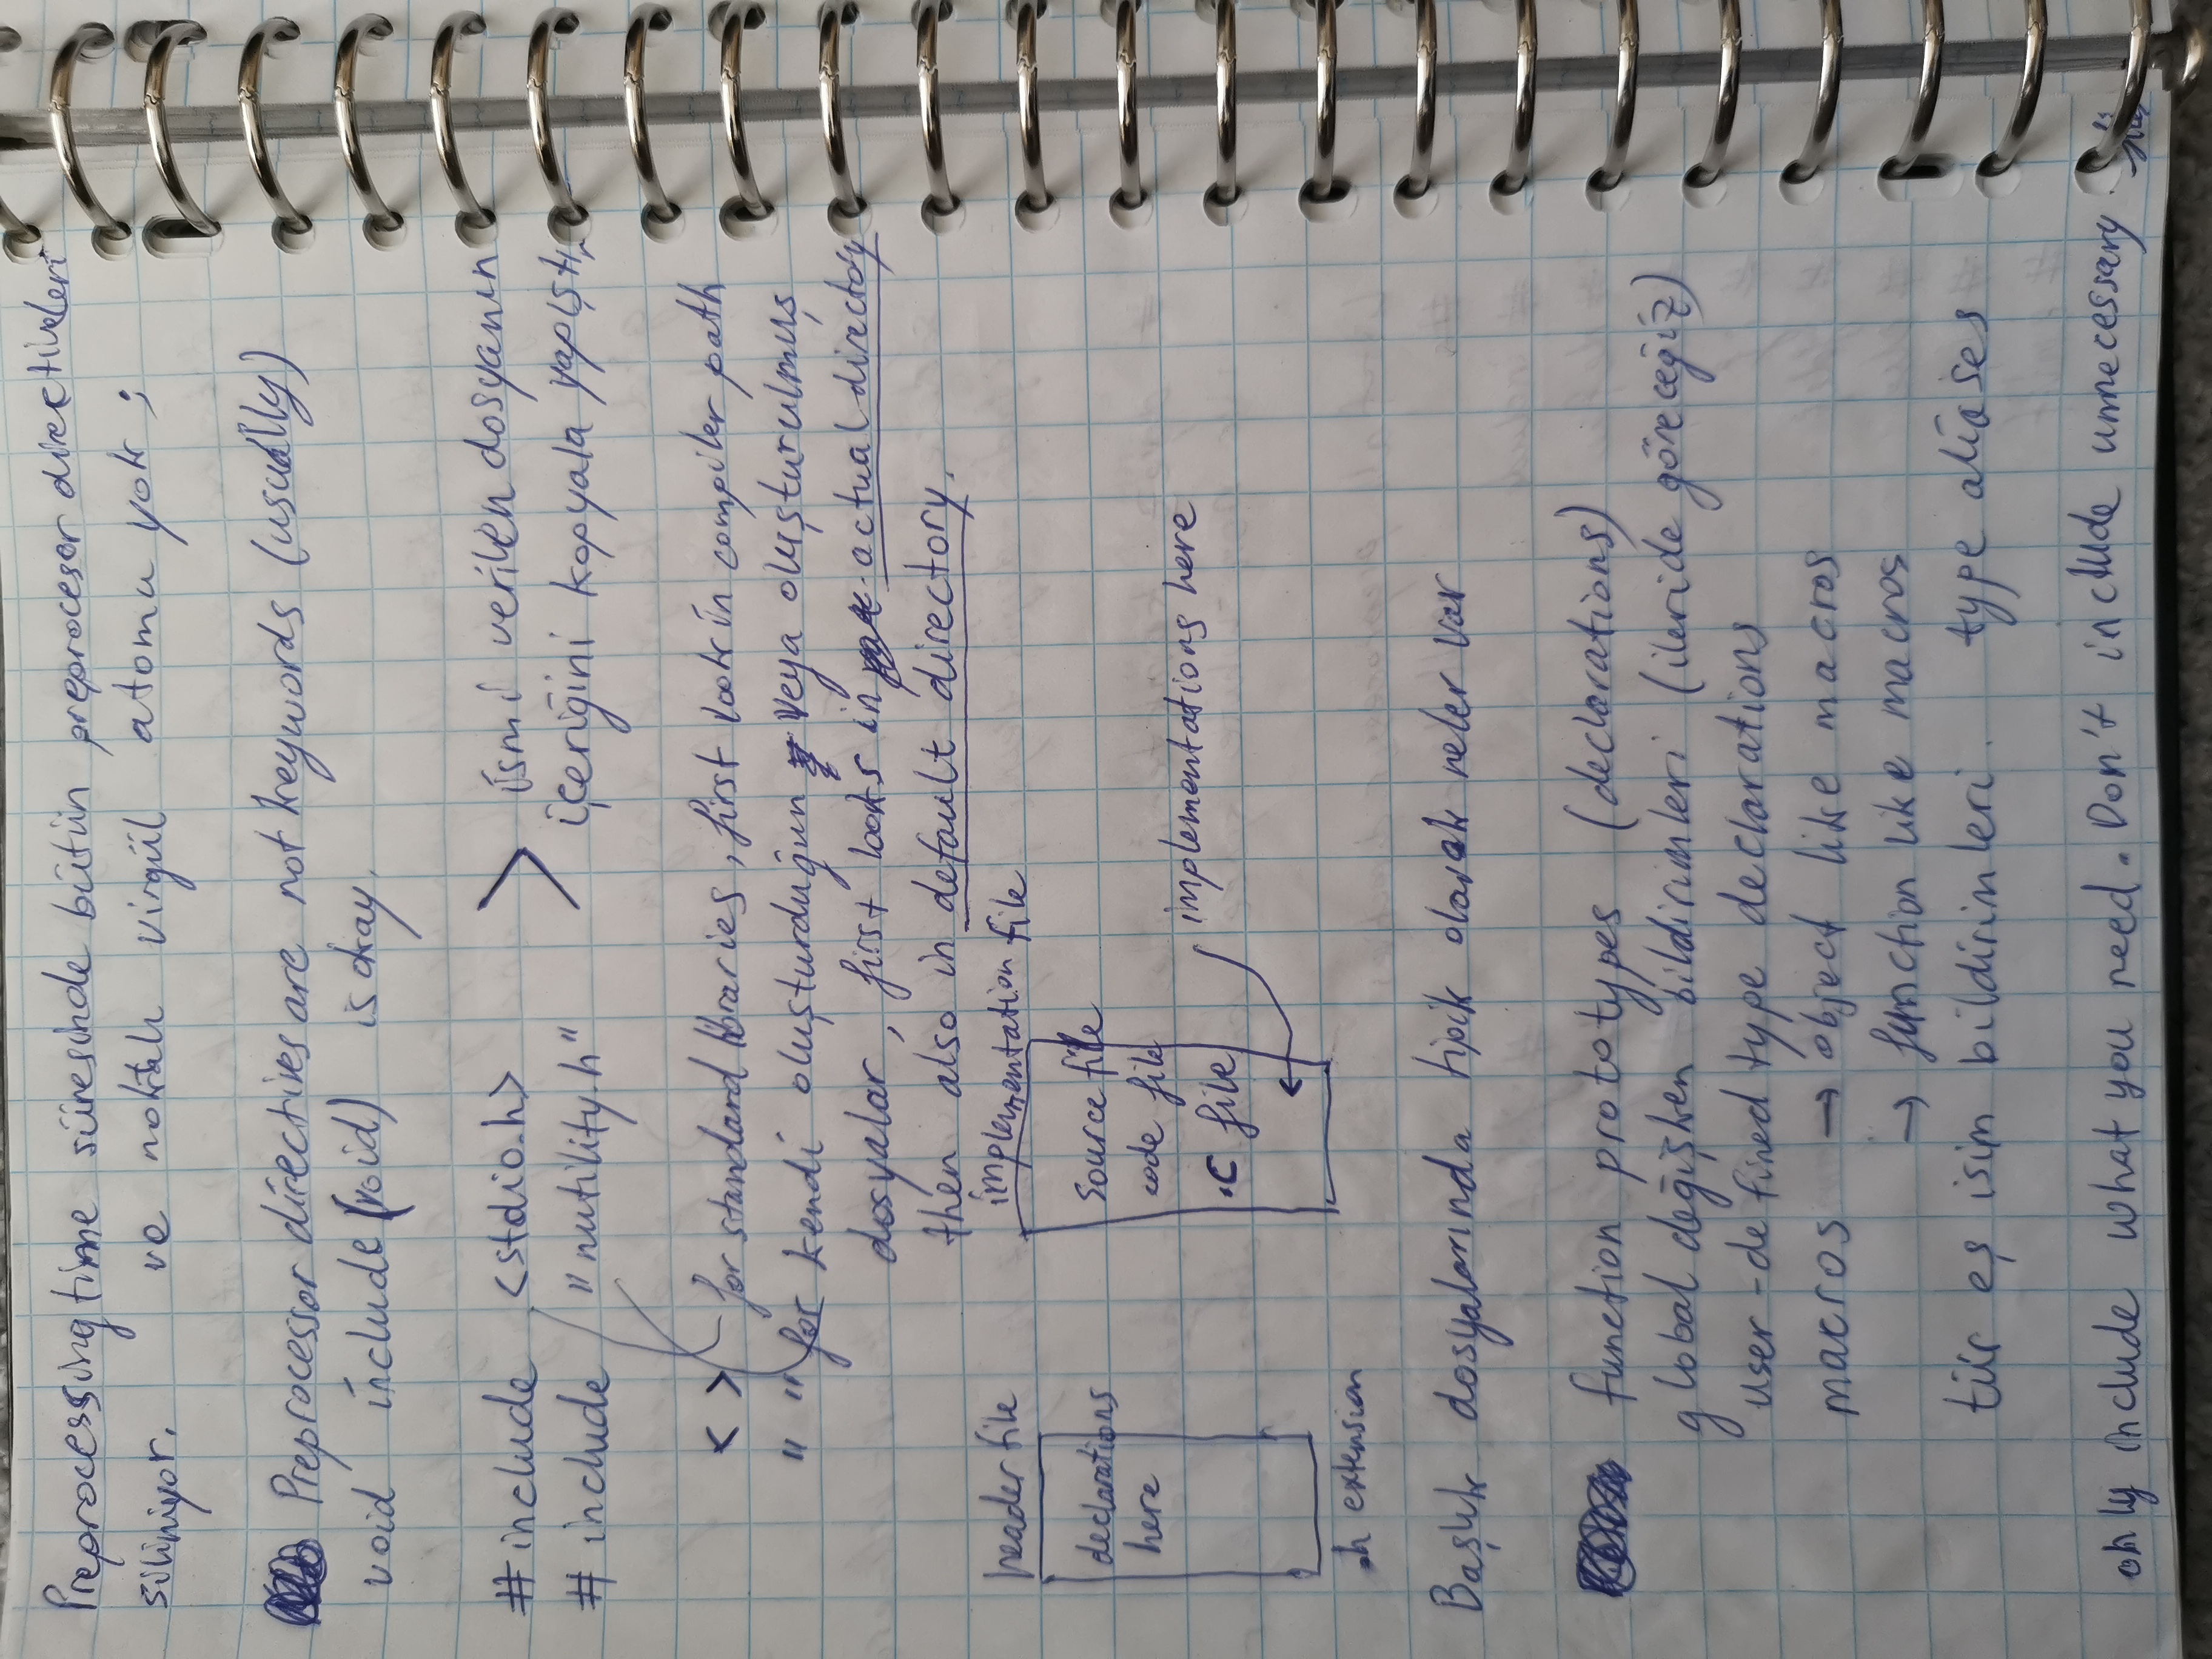 Preprocessing time süresinde bütün preprocesor directiveleri
siliniyor. ve noktalı virgül atomu yok ;
Preprocessor directives are not keywords (usually)
void include(void) is okay.
#include <stdio.h> > ismi verilen dosyanın
#include "nutility.h" içeriğini kopyala yapıştır
< > for standard libraries, first look in compiler path
" " for kendi oluşturduğun veya oluşturulmuş
dosyalar, first looks in actual directory
then also in default directory.
header file
implementation file
declarations
here
source file
code file
.c file
implementations here
.h extension
Başlık dosyalarında tipik olarak neler var
function prototypes (declarations)
global değişken bildirimleri (ileride göreceğiz)
user-defined type declarations
macros → object like macros
→ function like macros
tür eş isim bildirimleri. type aliases
only include what you need. Don't include unnecessary